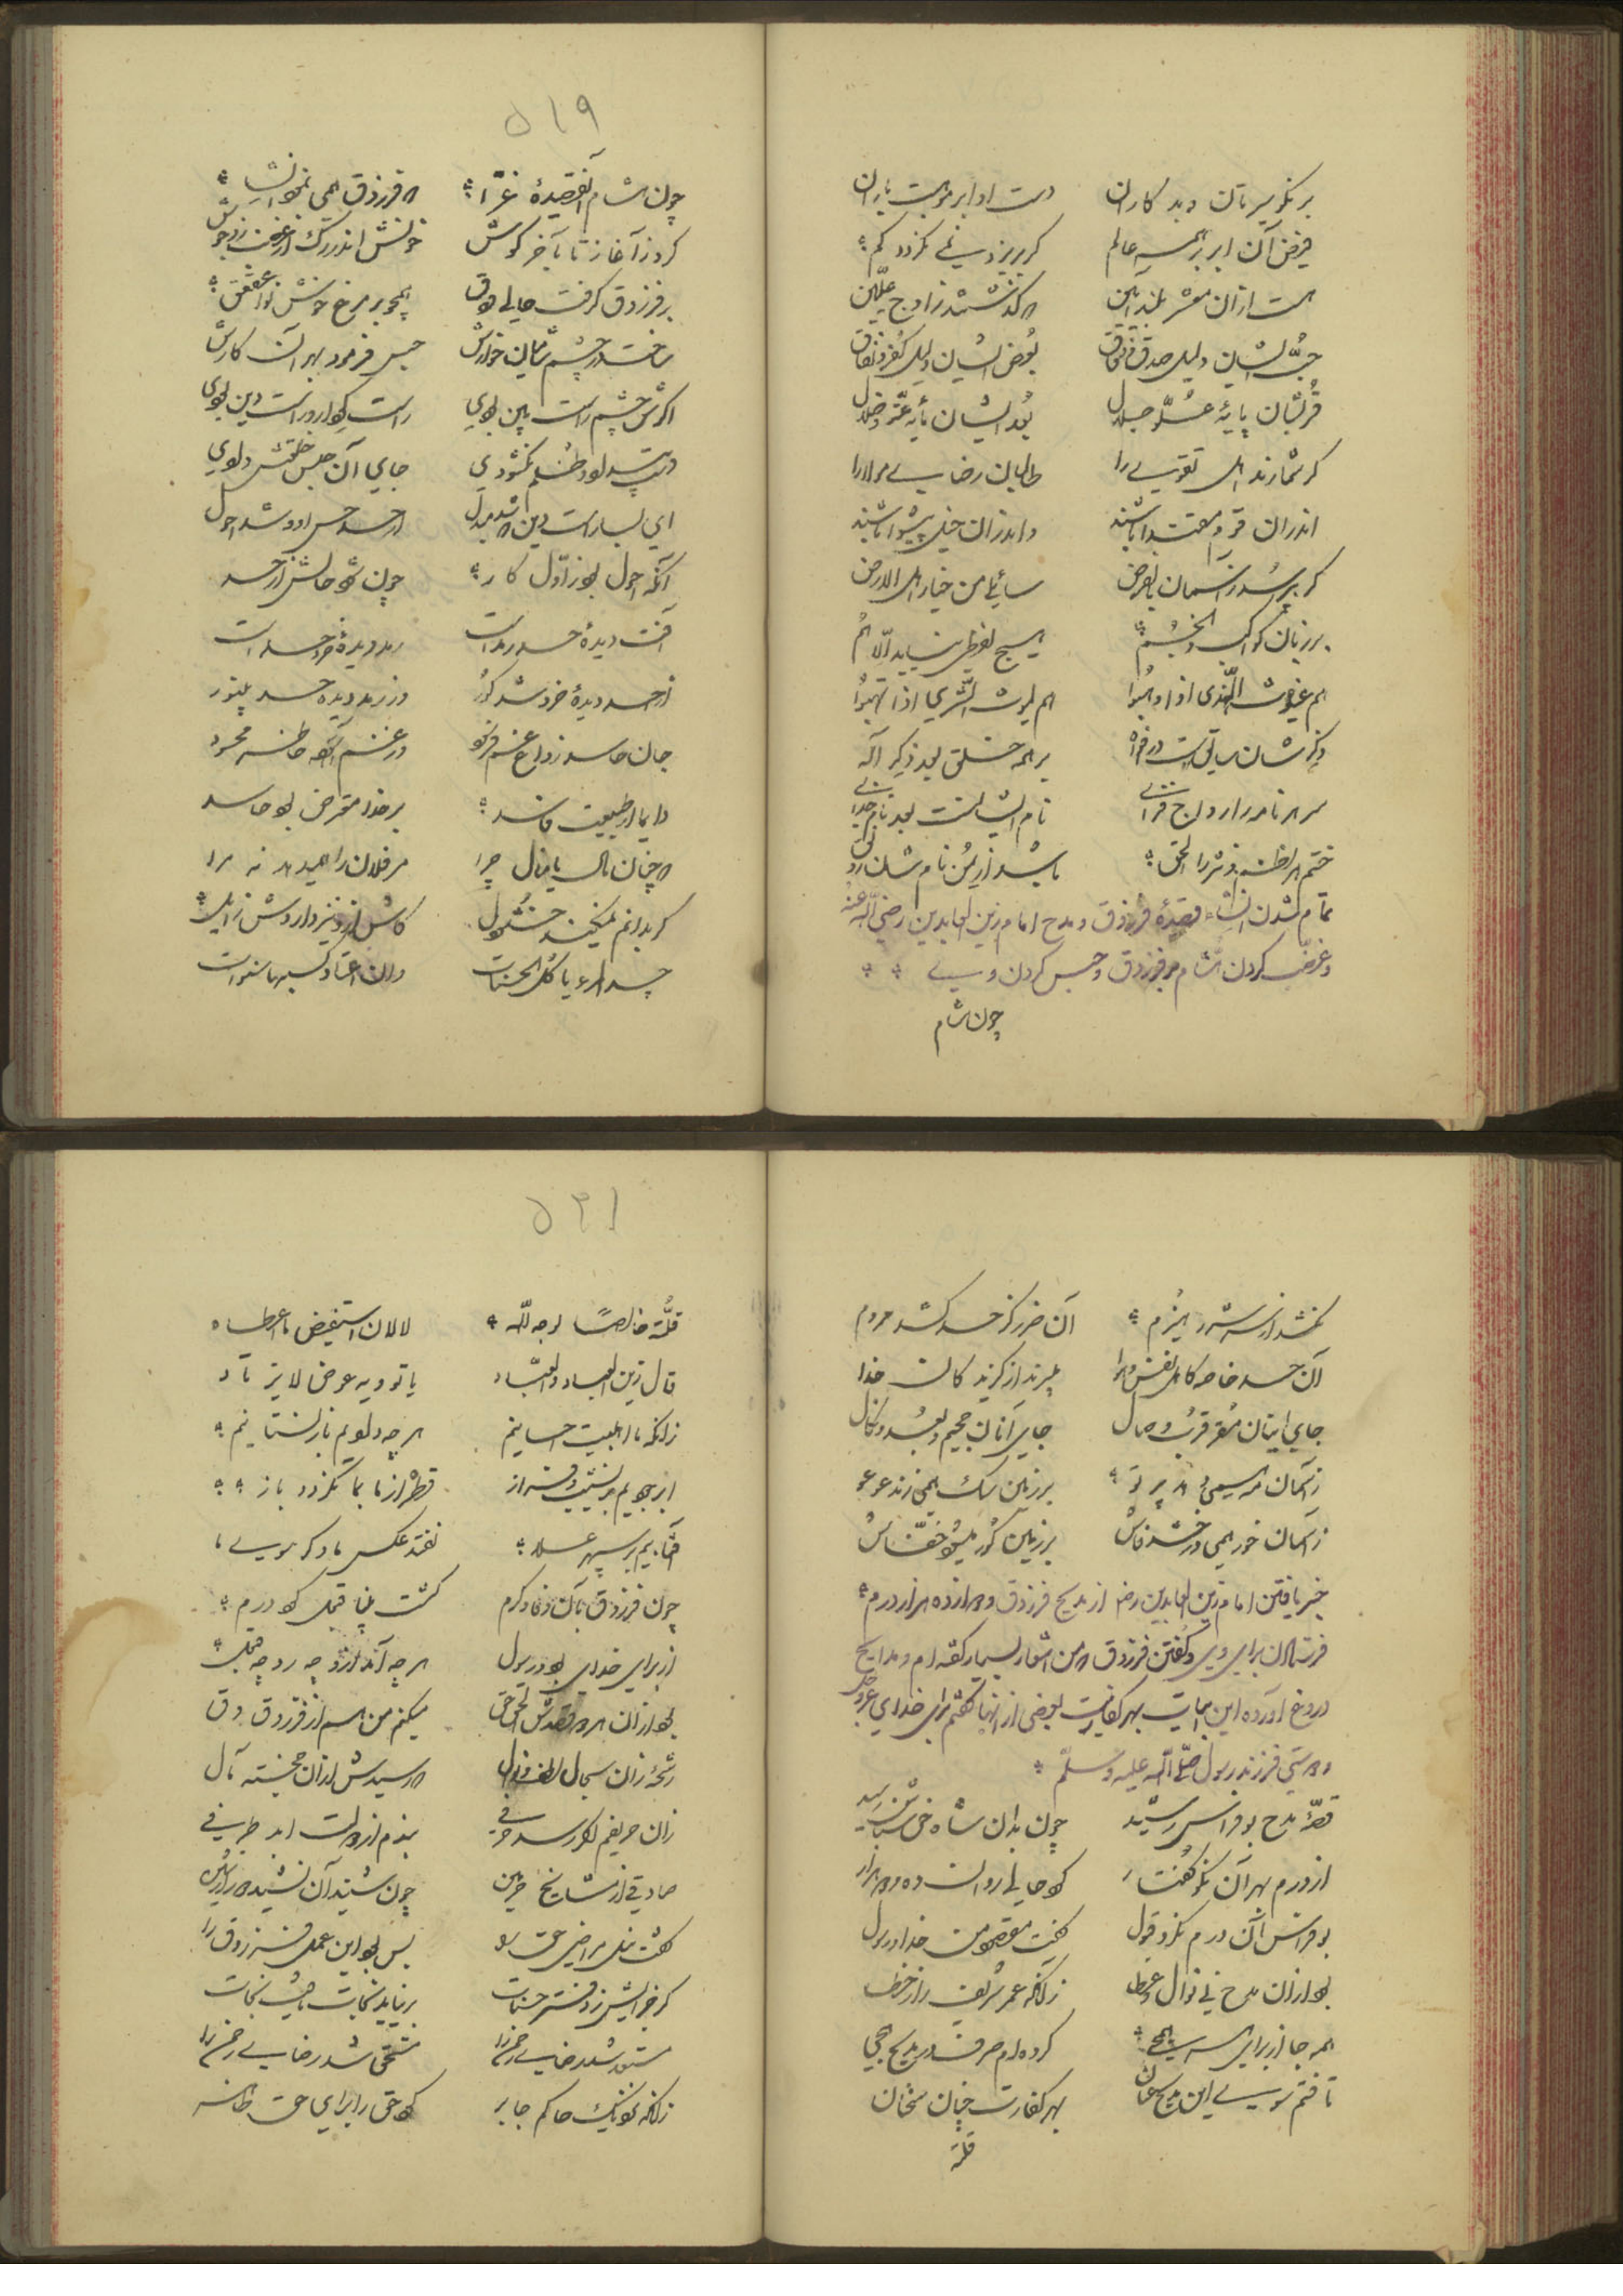 بر نکو سیرتان و بد کاران	دست او ابر موهبت باران
فیض آن ابر بر همه عالم	گر بریزد نمی نگردد کم
هست ازان معشر بلند آیین	که گذشتند ز اوج علیین
حب ایشان دلیل صدق و وفاق	بغض ایشان دلیل کفر و نفاق
قربشان پایهٔ علو و جلال	بعدشان مایهٔ عتو و ضلال
گر شمارند اهل تقوی را	طالبان رضای مولا را
اندران قوم مقتدا باشند	واندران خیل پیشوا باشند
گر بپرسد ز آسمان بالفرض	سائلی من خیار اهل الارض
بر زبان کواکب و انجم	هیچ لفظی نیاید الا هم
هم غیوث الندی اذا وهبوا	هم لیوث الشری اذا نهبوا
ذکرشان سابق است در افواه	بر همه خلق بعد ذکر اله
سر هر نامه را رواج فزای	نام ایشانست بعد نام خدای
ختم هر نظم و نثر را الحق	باشد از یمن نامشان رونق
تمام شدن انشاء قصیدهٔ فرزدق در مدح امام زین العابدین رضی الله عنه
و غضب کردن هشام بر فرزدق و حبس کردن وی
چون هشام
۵۱۹
چون هشام آن قصیدهٔ غرا	که فرزدق همی نمود انشا
کرد از آغاز تا به آخر گوش	خونش اندر رگ از غضب زد جوش
بر فرزدق گرفت حالی دق	همچو بر مرغ خوش نوا عقعق
ساخت در چشم شامیان خوارش	حبس فرمود بهر آن کارش
اگرش چشم راست بین بودی	راست کردار و راست دین بودی
دست بیداد و ظلم نگشودی	جای آن حبس خلعتش دادی
ای بسا راست بین که شد مبدل	از حسد حس او و شد احول
آنکه احول بود ز اول کار	چون شود حالش از حسد
آفت دیدهٔ حسد رمد است	رمد دیدهٔ خرد حسد است
از حسد دیدهٔ خرد شد کور	وز رمد دیدهٔ حسد بی نور
جان حاسد ز داغ غم فرسود	در غم آسوده خاطر محسود
دایما از طبیعت فاسد	بر خدا معترض بود حاسد
که چنان مال یا منال چرا	مر فلان را همی دهد نه مرا
گر بدانم نمیکند خوشدل	کاش ازو نیز داردش زایل
حسد المرء یأکل الحسنات	
نکشد از شرر هیزم	آن ضرر کز حسد کشد مردم
آن حسد خاصه کاهل نفس و هوا	میبرند از گزیدگان خدا
جای اینان مقر قرب وصال	جای آنان جحیم بعد و نکال
ز آسمان مه همی دهد پرتو	بر زمین سگ همی زند عوعو
ز آسمان خور همی درخشد فاش	بر زمین کور میشود خفاش
خبر یافتن امام زین العابدین رضه از مدح فرزدق و دوازده هزار درم
فرستادن برای وی و گفتن فرزدق که من اشعار بسیار گفته ام و مدایح
دروغ آورده این ابیات بهر کفارت بعضی از آنها گفتم برای خدای عز و جل
و دوستی فرزند رسول صلی الله علیه و سلم
قصهٔ مدح بو فراس رشید	چون بدان شاه حق شناس رسید
از درم بهر آن نکو گفتار	کرد حالی روان ده و دو هزار
بو فراس آن درم نکرد قبول	گفت مقصود من خدا و رسول
بود ازان مدح نی نوال و عطا	زانکه عمر شریف را ز خطا
همه جا از برای همه هجی	کرده ام صرف در مدیح و هجی
تافتم سوی این مدیح عنان	بهر کفارت چنان سخنان
قلته
۵۲۱
قلته خالصا لوجه الله	لا لان استفیض ما اعطاه
قال زین العباد و العباد	ما نؤدیه عوض لا یرتاد
زانکه ما اهل بیت احسانیم	هر چه دادیم باز نستانیم
ابر جودیم بر نشیب و فراز	قطره از ما به ما نگردد باز
آفتابیم بر سپهر علا	نفتد عکس ما دگر سوی ما
چون فرزدق به آن وفا و کرم	گشت بینا قبول کرد درم
از برای خدای بود و رسول	هر چه آمد ازو چه رد چه قبول
بود ازان هر دو قصدش الحق حق	میکنم من هم از فرزدق دق
رشحهٔ زان سجال لطف و نوال	که رسیدش ازان خجسته مآل
زان حریفم اگر رسد حرفی	بندم از دولت ابد طرفی
صادقی از مشایخ حرمین	چون شنید آن نشید دور از شین
گفت نیل مراضی حق را	بس بود این عمل فرزدق را
گر جز اینش ز دفتر حسنات	بر نیاید نجات یافت نجات
مستعد شد رضای رحمن را	مستحق شد ریاض رضوان را
زانکه نزدیک حاکم جابر	کرد حق را برای حق ظاهر